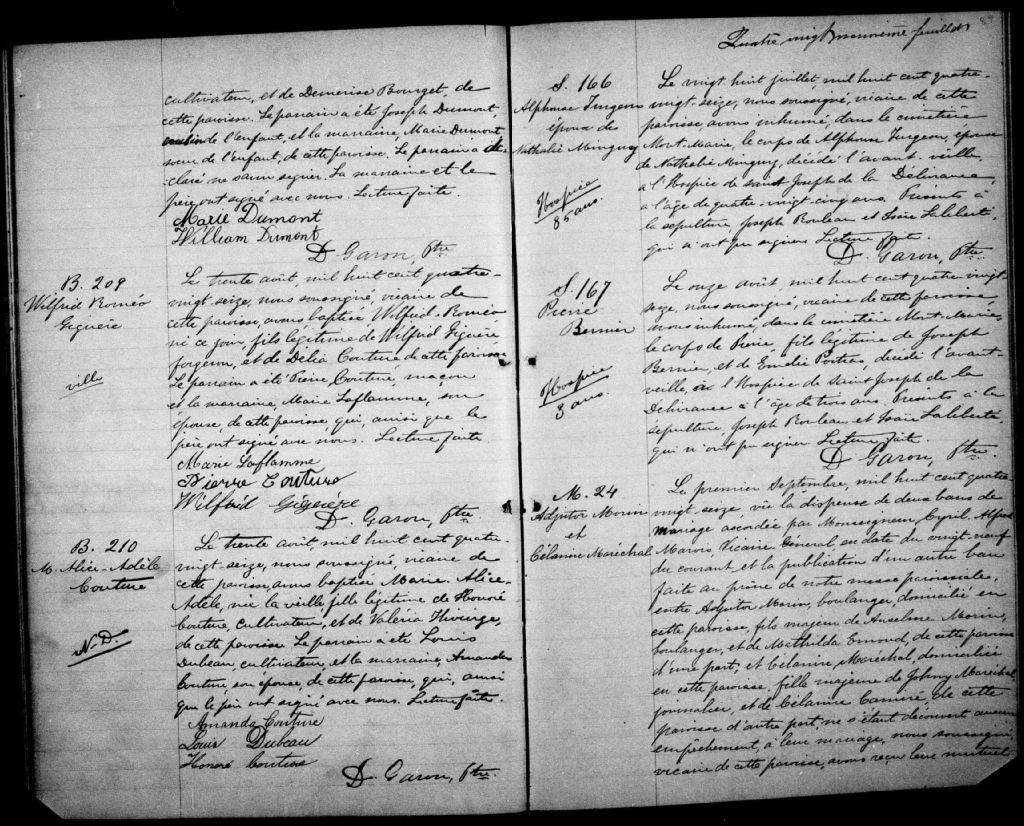 cultivateur, et de Demerise Bourget, de
cette paroisse. Le parrain a été Joseph Dumont,
cousin de l'enfant, et la marraine, Marie Dumont
sœur de l'enfant, de cette paroisse. Le parrain a dé-
claré ne savoir signer. La marraine et le
père ont signé avec nous. Lecture faite.
Marie Dumont
William Dumont
D. Garon, Ptre
B. 209
Wilfrid Roméo
Giguère
ville
Le trente août, mil huit cent quatre-
vingt-seize, nous soussigné, vicaire de
cette paroisse, avons baptisé Wilfrid-Roméo
né ce jour, fils légitime de Wilfrid Giguère,
forgeron, et de Délia Couture, de cette paroisse
Le parrain a été Pierre Couture, maçon
et la marraine, Marie Laflamme, son
épouse, de cette paroisse, qui, ainsi que le
père ont signé avec nous. Lecture faite
Marie Laflamme
Pierre Couture
Wilfrid Giguère
D. Garon, Ptre.
B. 210
M. Alice-Adèle
Couture
N.D.
Le trente août, mil huit cent quatre-
vingt-seize, nous soussigné, vicaire de
cette paroisse, avons baptisé Marie-Alice-
Adèle, née la veille fille légitime de Honoré
Couture, cultivateur, et de Valéria Thivierge,
de cette paroisse. Le parrain a été Louis
Dubeau, cultivateur, et la marraine, Amanda
Couture, son épouse, de cette paroisse, qui, ainsi
que le père ont signé avec nous. Lecture faite.
Amanda Couture
Louis Dubeau
Honoré Couture
D. Garon, Ptre.
Quatre vingt neuvième feuillet
S. 166
Alphonse Turgeon
époux de
Nathalie Minguy
Hospice
85 ans.
Le vingt huit juillet, mil huit cent quatre-
vingt-seize, nous soussigné, vicaire de cette
paroisse, avons inhumé, dans le cimetière
Mont-Marie, le corps de Alphonse Turgeon, époux
de Nathalie Minguy, décédé l'avant-veille
à l'Hospice de saint Joseph de la Délivrance
à l'âge de quatre-vingt-cinq ans. Présents à
la sépulture, Joseph Rouleau et Isaïe Laliberté
qui n'ont pu signer. Lecture faite.
D. Garon, Ptre.
S. 167
Pierre
Bernier
Hospice
3 ans.
Le onze août, mil huit cent quatre-vingt-
seize, nous soussigné, vicaire de cette paroisse,
avons inhumé, dans le cimetière Mont-Marie,
le corps de Pierre, fils légitime de Joseph
Bernier, et de Emélie Poitras, décédé l'avant-
veille, à l'Hospice de Saint-Joseph de la
Délivrance à l'âge de trois ans. Présents à la
sépulture, Joseph Rouleau et Isaïe Laliberté
qui n'ont pu signer. Lecture faite.
D. Garon, Ptre.
M. 24
Adjutor Morin
et
Célanire Maréchal
Le premier Septembre, mil huit cent quatre
vingt-seize, vu la dispense de deux bans de
mariage accordée par Monseigneur Cyril. Alfred
Marois, Vicaire Général, en date du vingt-neuf
du courant et la publication d'un autre ban
faite au prône de notre messe paroissiale,
entre Adjutor Morin, boulanger, domicilié en
cette paroisse, fils majeur de Anselme Morin,
boulanger, et de Mathilda Emond, de cette paroisse
d'une part, et Célanire Maréchal, domiciliée
en cette paroisse, fille majeure de Johnny Maréchal,
journalier, et de Célanire Camiré, de cette
paroisse d'autre part, ne s'étant découvert aucun
empêchement, à leur mariage, nous soussigné,
vicaire de cette paroisse, avons reçu leur mutuel